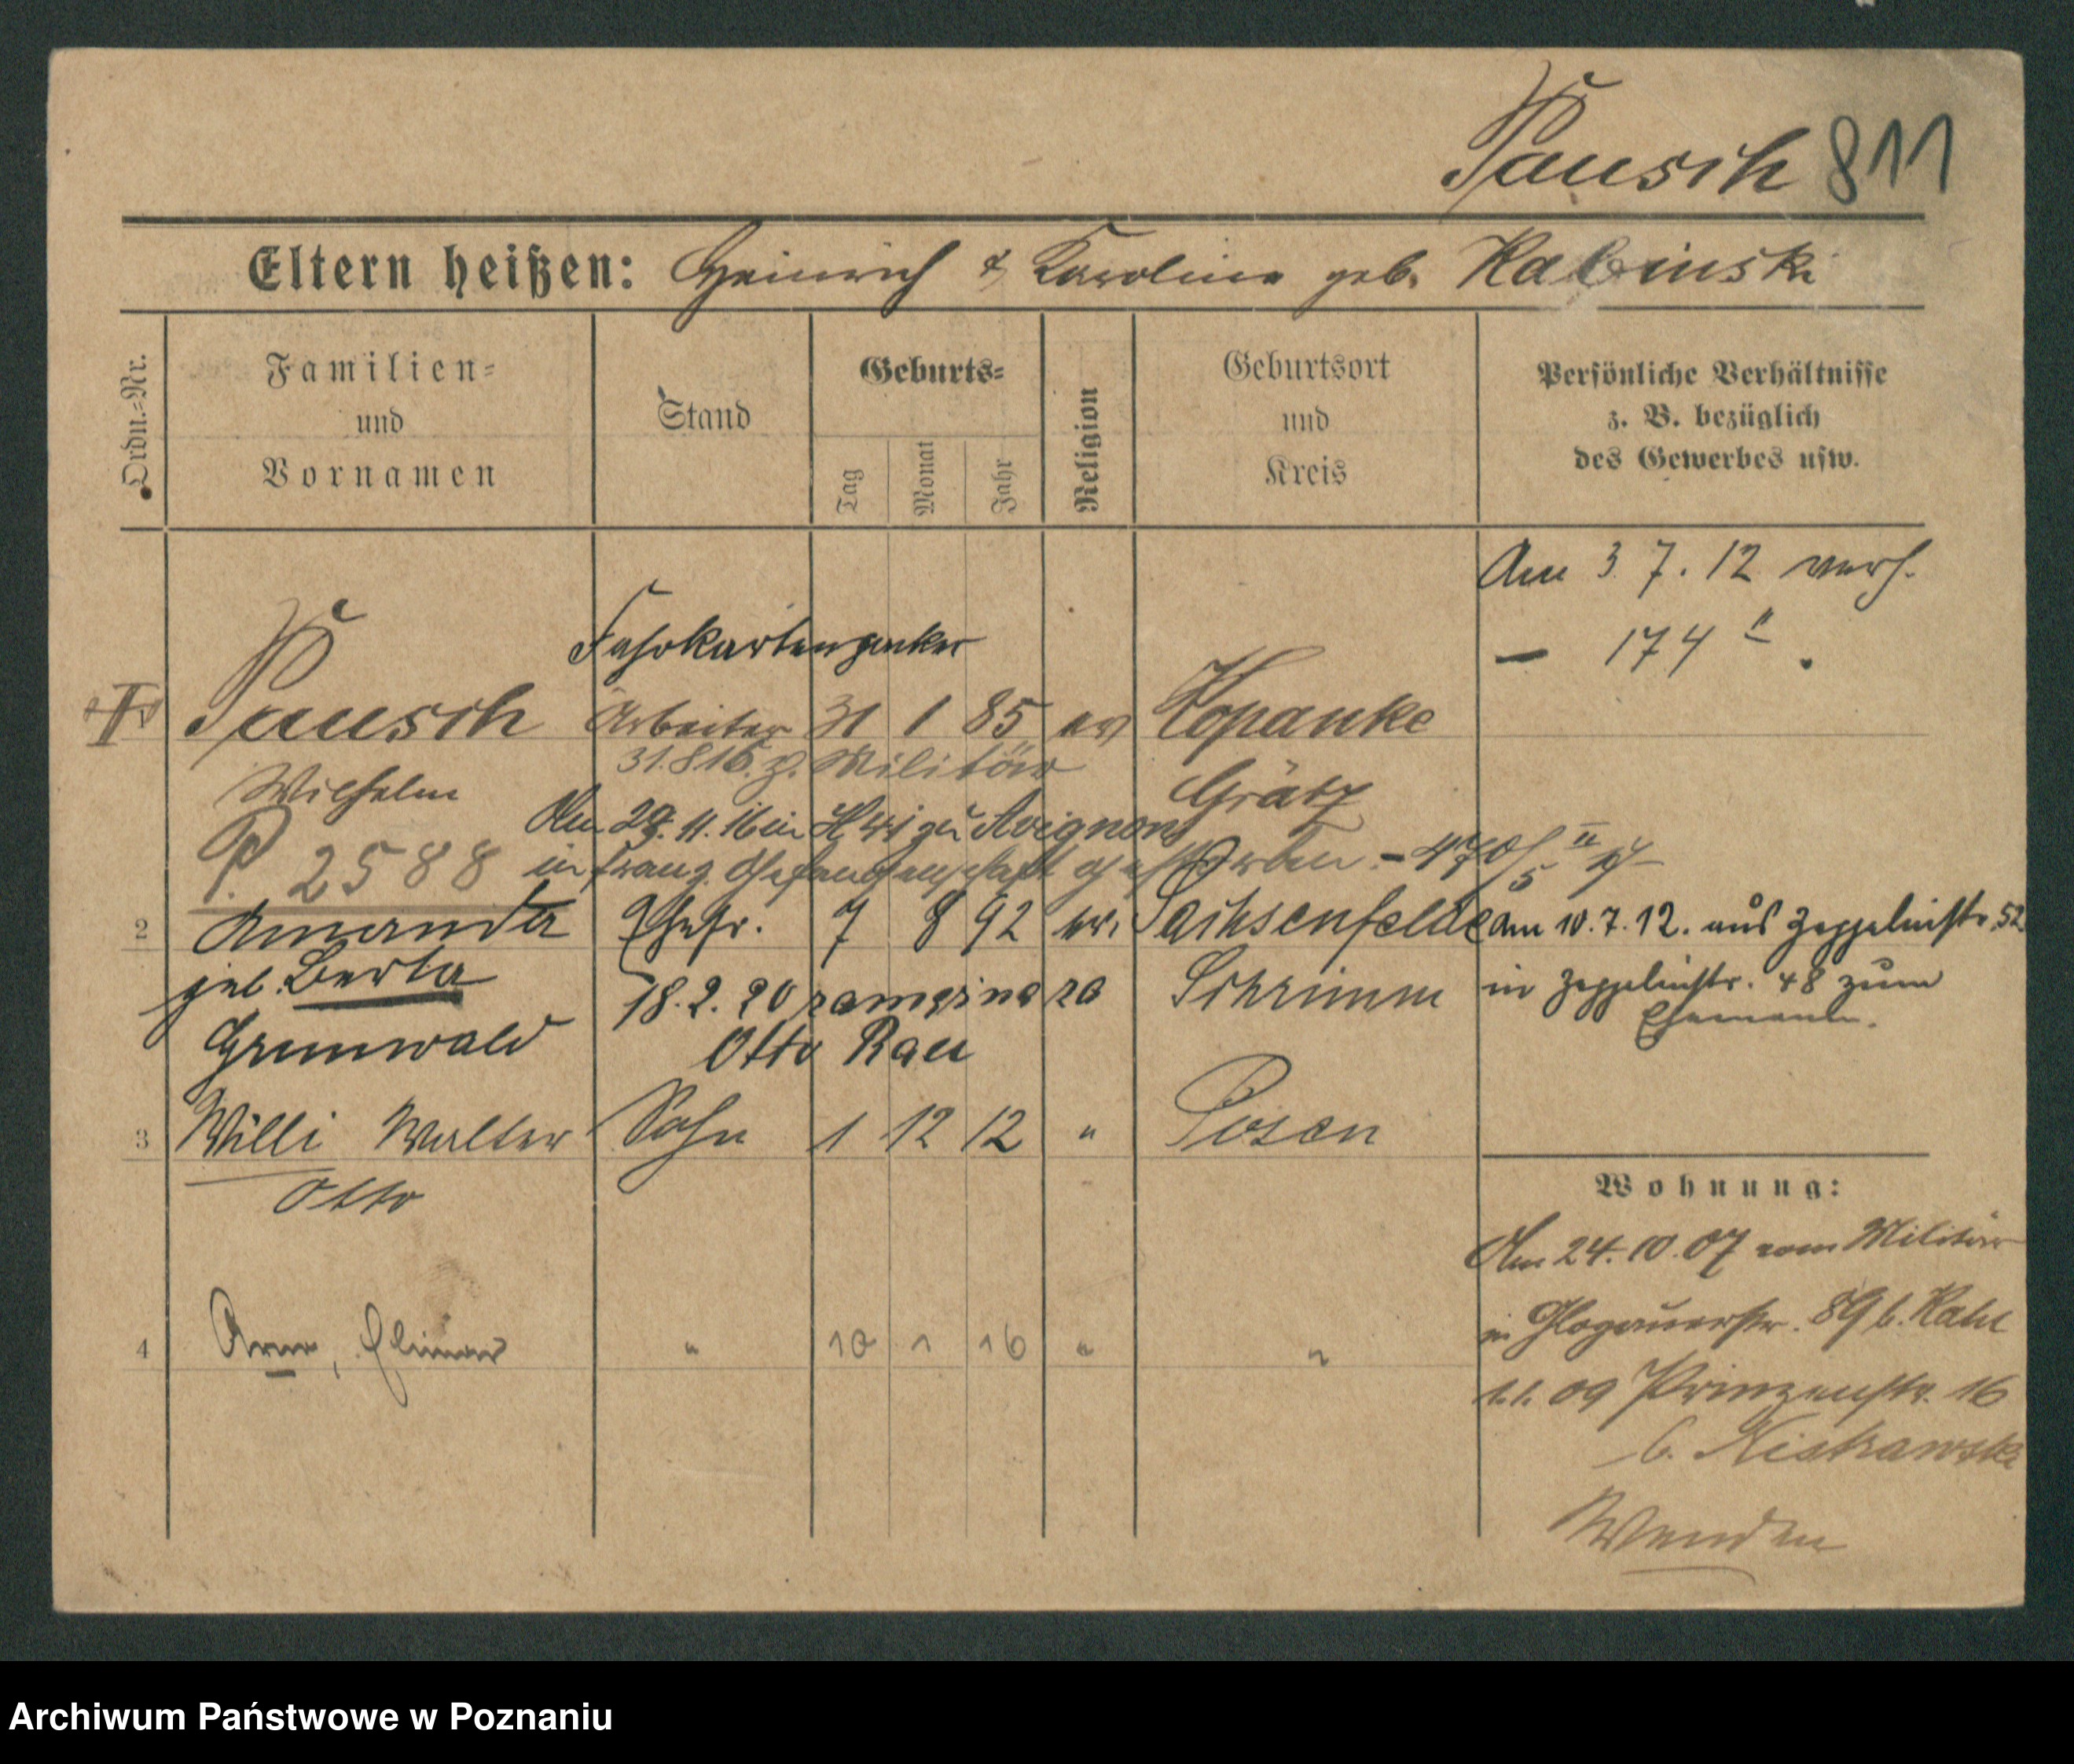 Pausch 811
Eltern heißen: Heinrich & Karoline geb. Kabinski
Ordn.=Nr.
Familien=
und
Vornamen
Stand
Geburts=
Tag
Monat
Jahr
Religion
Geburtsort
und
Kreis
Persönliche Verhältnisse
z. B. bezüglich
des Gewerbes usw.
Am 3 7. 12 verh.
— 174 II.
Fahrkarten
Pausch Arbeiter 31 1 85 ev Kopanke
31.8.15. z. Militär
Wilhelm Grätz
Am 29. 11. 16 in zu Avignon
P. 2588 in franz. Gefangenschaft gestorben - 470/5 II
2 Amanda Ehefr. 7 8 92 ev. Sachsenfelde am 10. 7. 12. aus Zeppelinstr. 52
geb. Berta 18. 2. 20 Schrimm in Zeppelinstr. 48 zum
Ehemann.
Grunwald Otto Rau
3 Willi Walter Sohn 1 12 12 " Posen
Otto
Wohnung:
Am 24. 10. 07 vom Militär
in Glogauerstr. 89 b.
4 " 10 1 16 " "
1.1. 09 Prinzenstr. 16
b.
Wenden
Archiwum Państwowe w Poznaniu